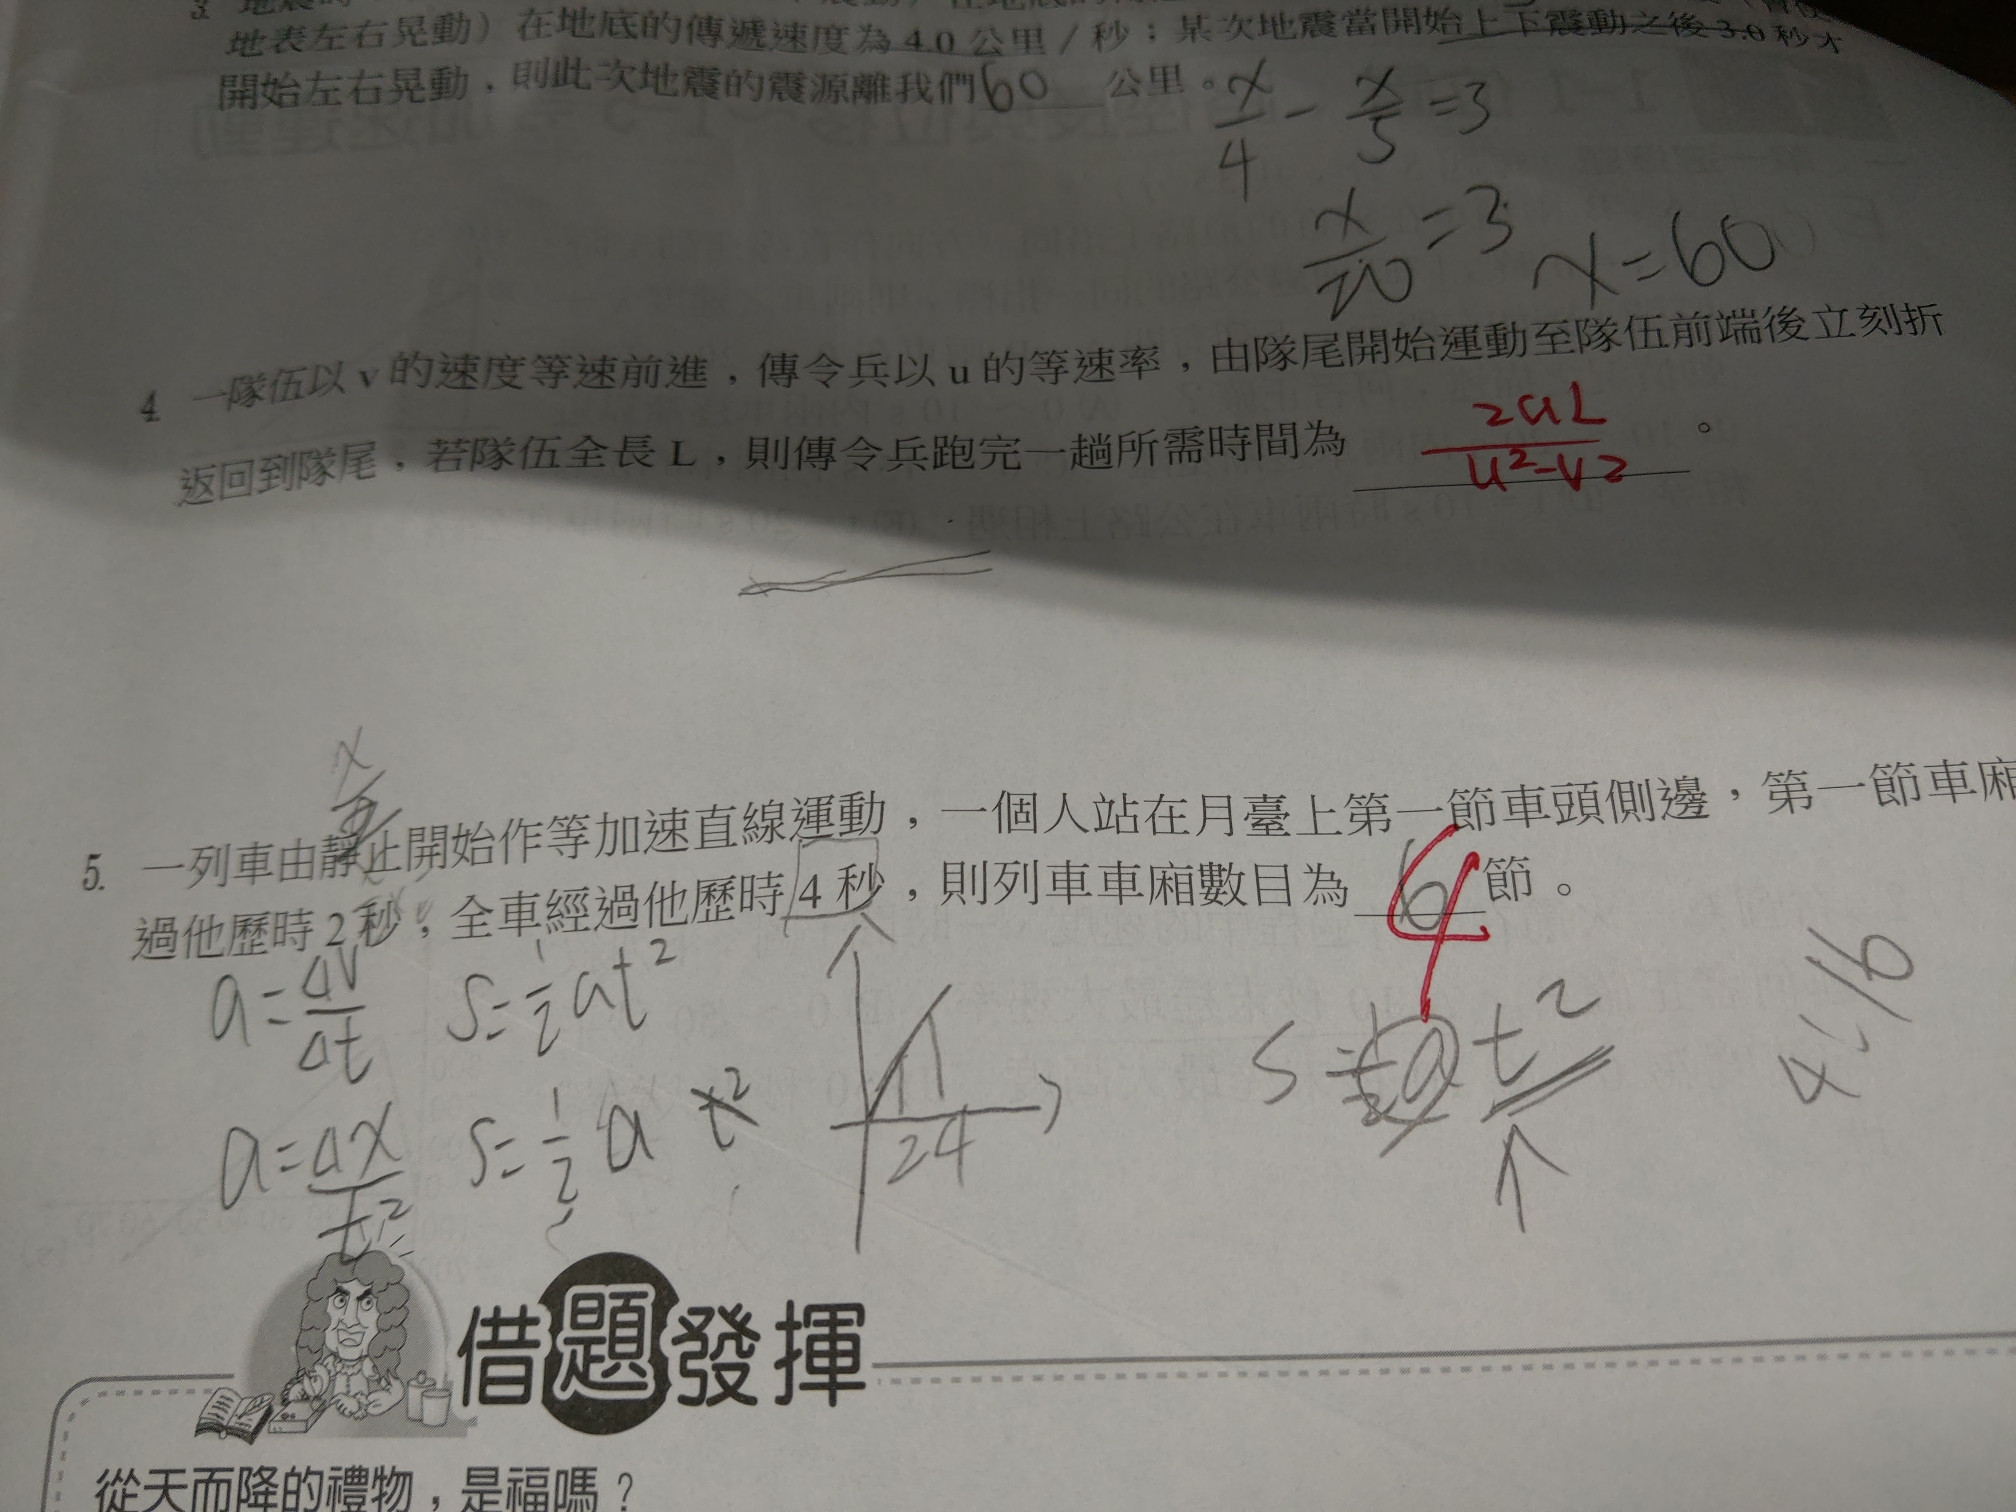 地表左右晃動）在地底的傳遞速度為 4.0 公里/秒；某次地震當開始上下震動之後 3.0 秒才
開始左右晃動，則此次地震的震源離我們 60 公里。
x/4 - x/5 = 3
x/20 = 3 x=60
4. 一隊伍以 v 的速度等速前進，傳令兵以 u 的等速率，由隊尾開始運動至隊伍前端後立刻折
返回到隊尾，若隊伍全長 L，則傳令兵跑完一趟所需時間為 2uL/u²-v² 。
5. 一列車由靜止開始作等加速直線運動，一個人站在月臺上第一節車頭側邊，第一節車廂
過他歷時 2 秒，全車經過他歷時 4 秒，則列車車廂數目為 4 節。
a=ΔV/Δt S=1/2at²
a=Δx/t² S=1/2a t²
24
S=1/2at²
4:16
借題發揮
從天而降的禮物，是福嗎？